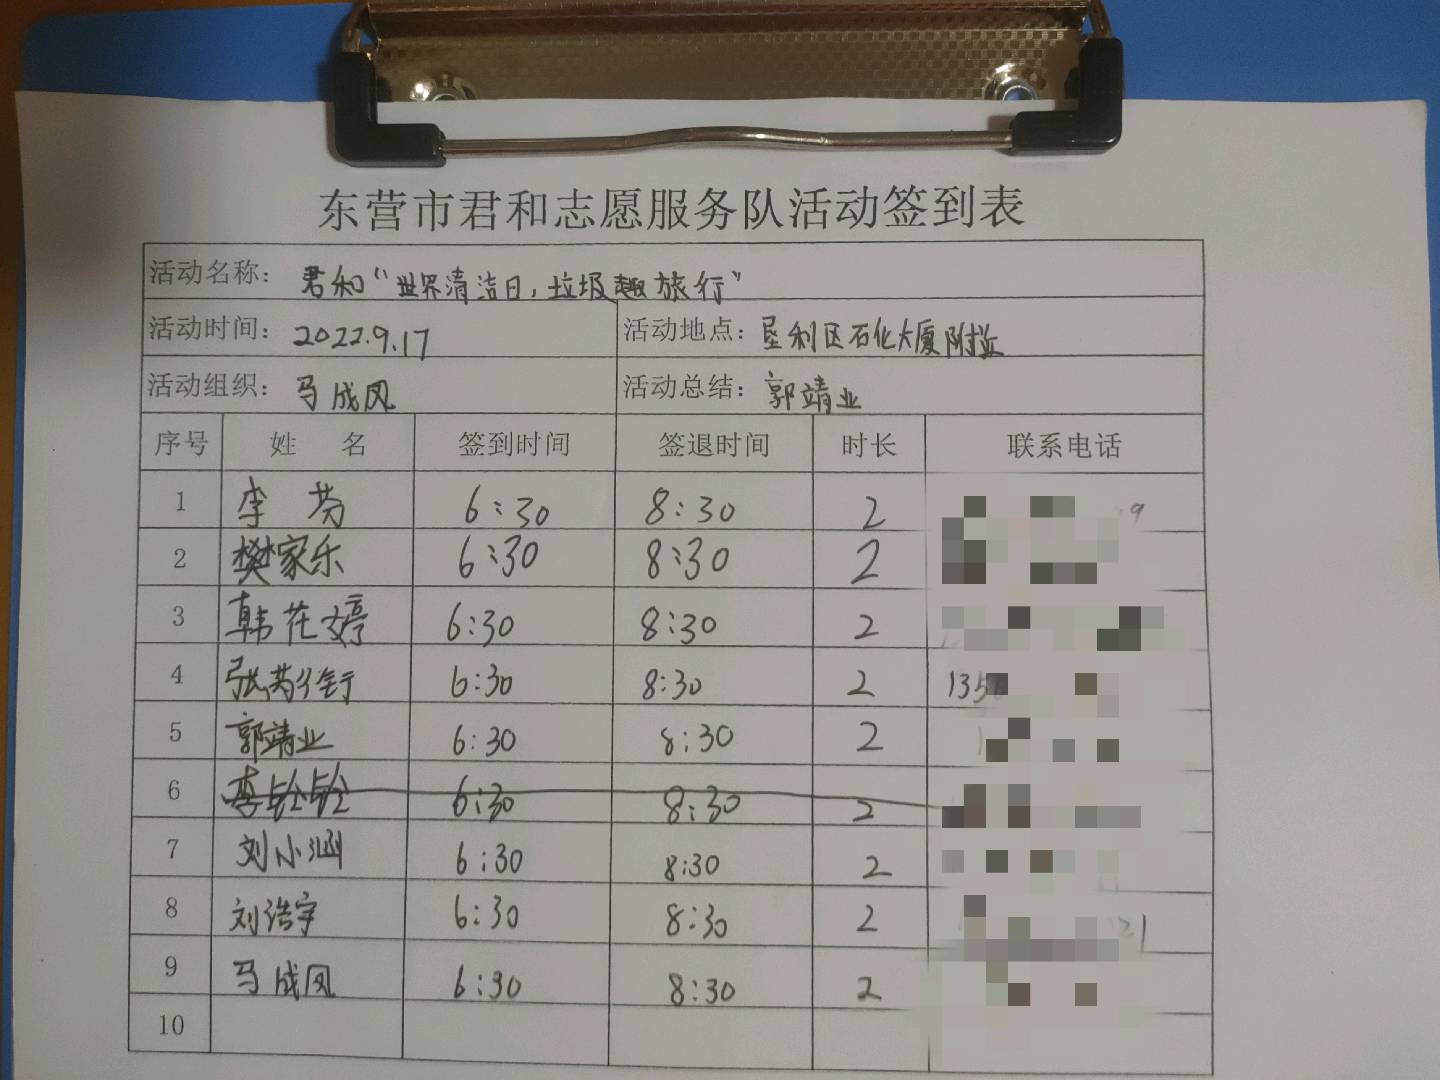 东营市君和志愿服务队活动签到表
活动名称： 君和“世界清洁日，垃圾趣旅行”
活动时间： 2022.9.17 活动地点： 垦利区石化大厦附近
活动组织： 马成风 活动总结： 郭靖业
序号 姓 名 签到时间 签退时间 时长 联系电话
1 李芬 6:30 8:30 2
2 樊家乐 6:30 8:30 2
3 韩花婷 6:30 8:30 2
4 6:30 8:30 2 135
5 郭靖业 6:30 8:30 2
6 6:30 8:30 2
7 刘小涵 6:30 8:30 2
8 刘浩宇 6:30 8:30 2 21
9 马成风 6:30 8:30 2
10